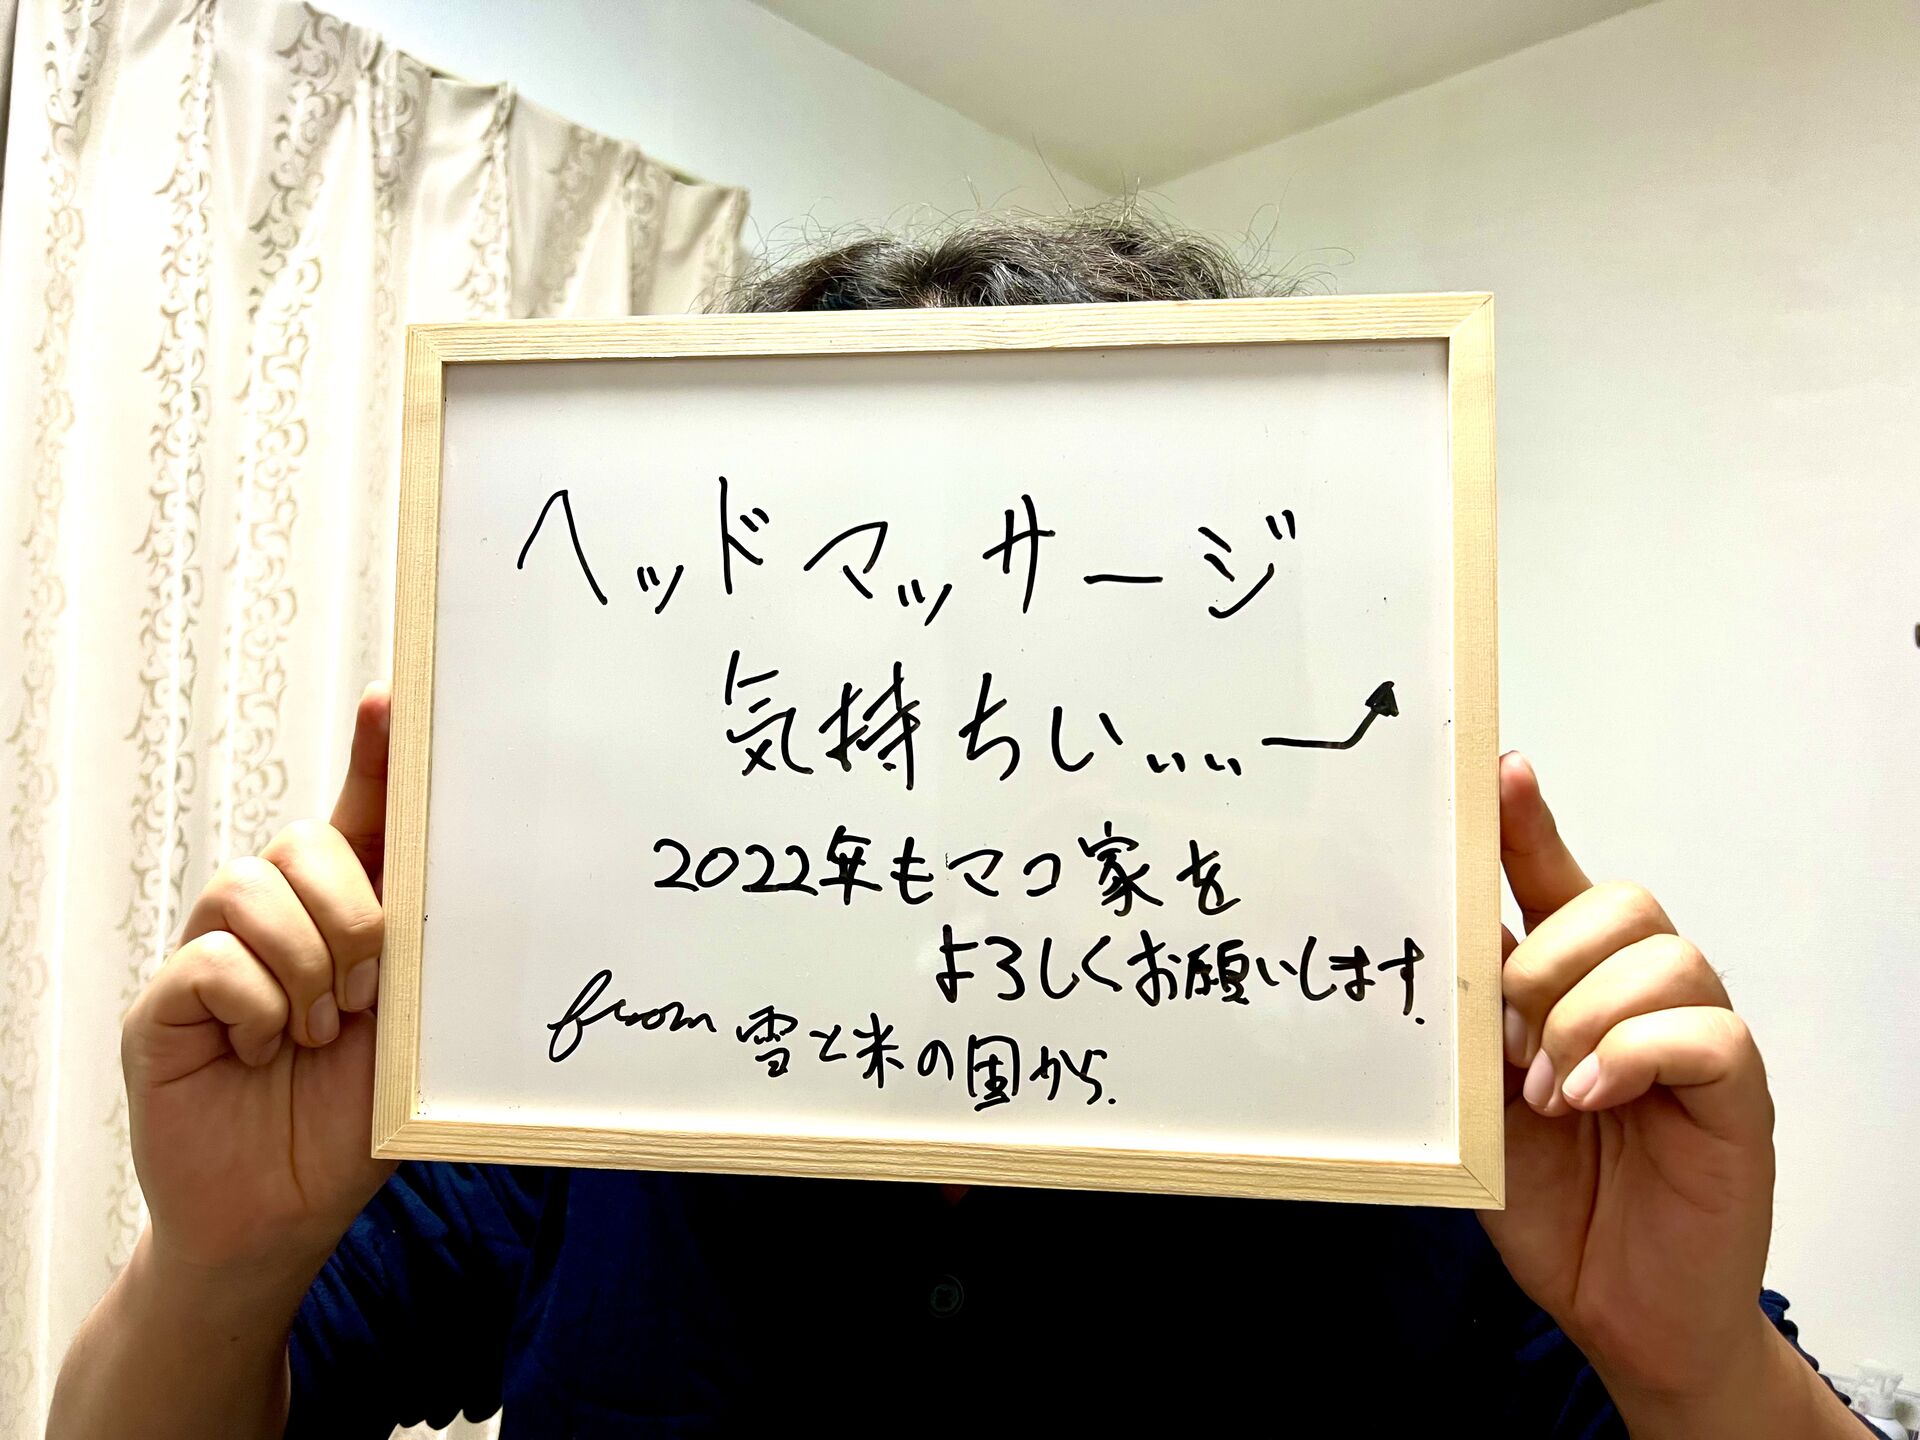 ヘッドマッサージ
気持ちい....
2022年もマコ家を
よろしくお願いします.
from 雪と米の国から.